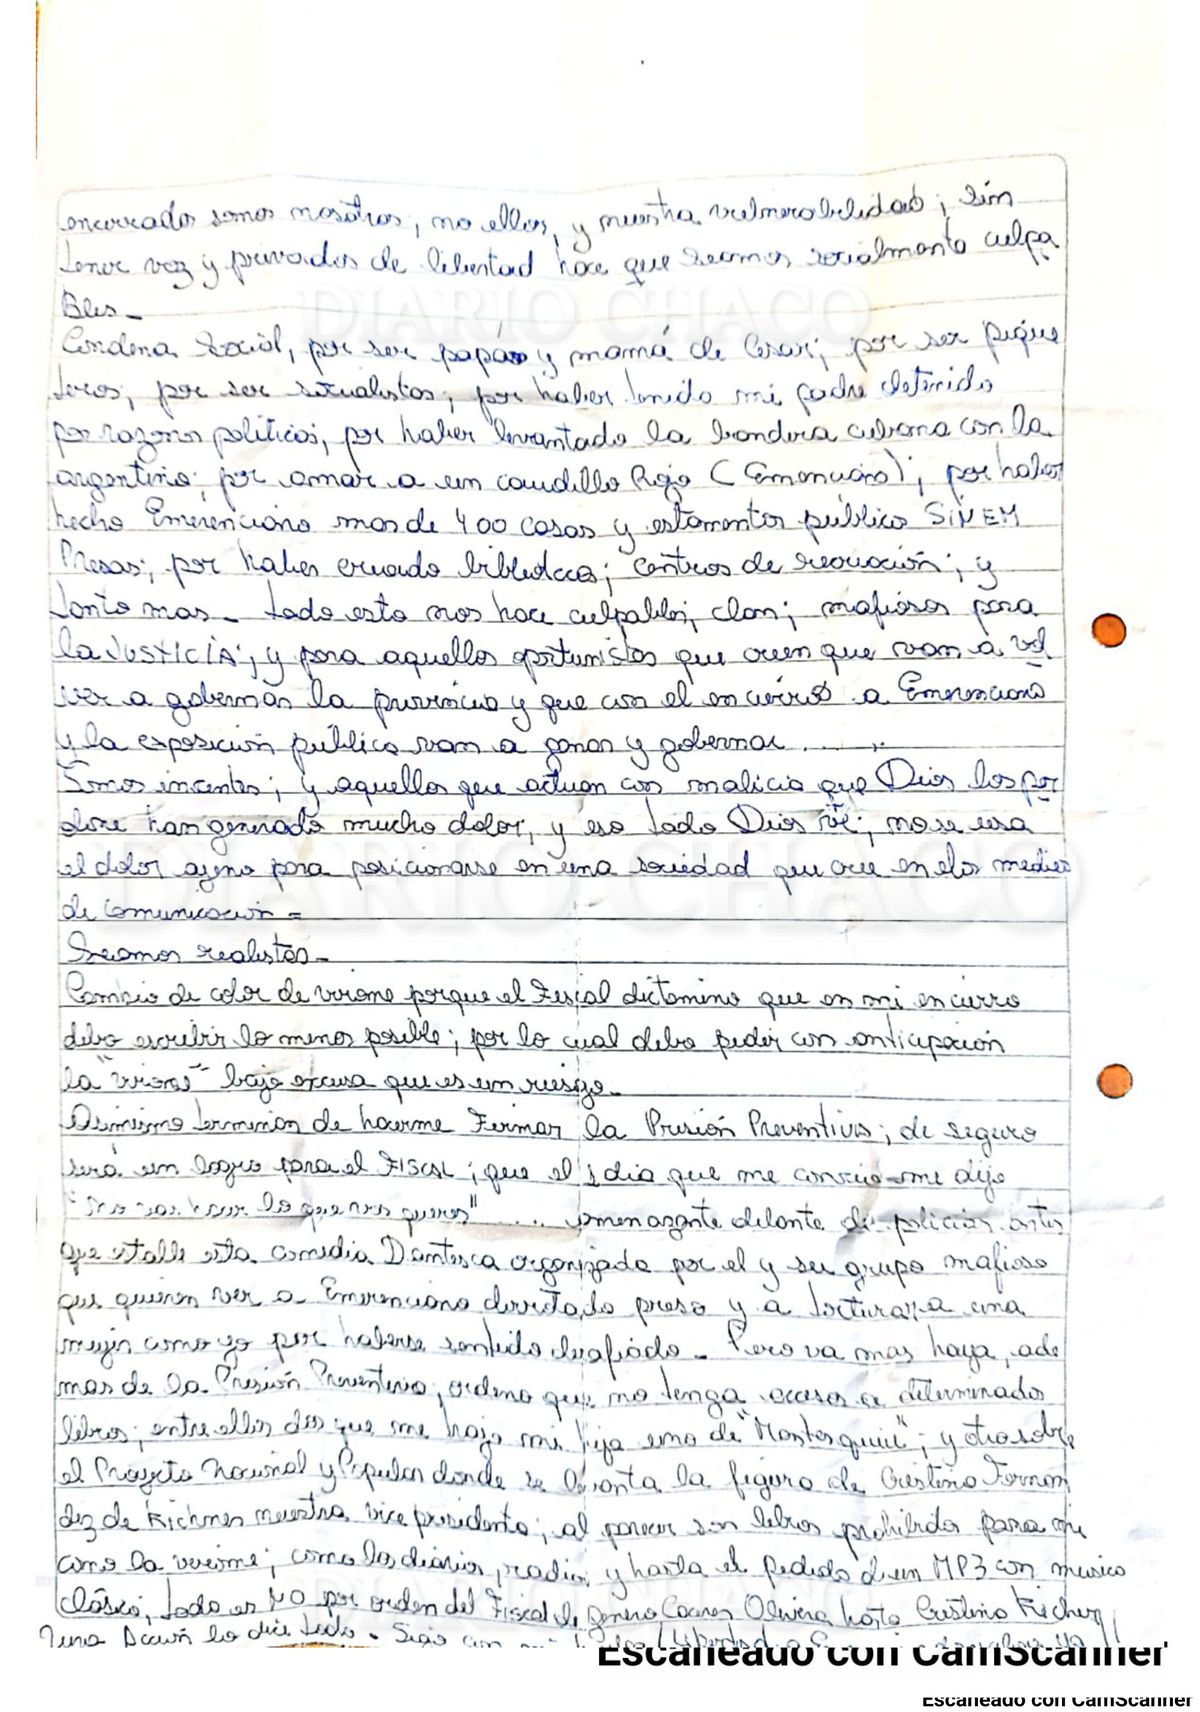 encerrados somos nosotros, no ellos, y nuestra vulnerabilidad; sin
tener voz y privados de libertad hace que seamos socialmente culpa
Bles -
Condena Social, por ser papá y mamá de Cesar; por ser pique
teros; por ser socialistas; por haber tenido mi padre detenido
por razones políticas; por haber levantado la bandera cubana con la
argentina; por amar a un caudillo Rojo (Emerenciano); por haber
hecho Emerenciano mas de 400 casas y estamentos público SiN EM
Presas; por haber creado bibliotecas; centros de recreación; y
tanto mas - todo esto nos hace culpables; clan; mafiosos para
la JUSTICIA; y para aquellos oportunistas que creen que van a vol
ver a gobernar la provincia y que con el encierro a Emerenciano
y la exposición pública van a ganar y gobernar ......
Somos incentes; y aquellos que actuan con malicia que Dios los per
done han generado mucho dolor, y eso todo Dios ve; no se usa
el dolor ajeno para posicionarse en una sociedad que cree en los medios
de comunicación =
Seamos realistas -
Cambio de color de virome porque el Fiscal dictamino que en mi encierro
debo escribir lo menos posible; por lo cual debo pedir con anticipación
la "virome" bajo excusa que es un riesgo -
Asimismo terminan de hacerme Firmar la Prisión Preventiva; de seguro
será un logro para el FISCAL; que el 1 dia que me conocio me dijo
"No vas hacer lo que vos queres" .... amenazante delante de policias antes
que estalle esta comedia Dantesca organizada por el y su grupo mafioso
que quieren ver a Emerenciano derrotado preso y a torturar a una
mujer como yo por haberse sentido desafiado - Pero va mas haya, ade
mas de la Prisión Preventiva, ordeno que no tenga acceso a determinados
libros; entre ellos dos que me trajo mi hija uno de "Montesquiu"; y otro sobre
el Proyecto Nacional y Popular donde se levanta la figura de Cristina Fernan
dez de Kichner nuestra vice presidenta; al parecer son libros prohibidos para mi
como la virome; como los diarios, radios y hasta el pedido de un MP3 con musica
Clásica, todo es NO por orden del Fiscal de genero Caceres Olivera hasta Cristina Kichner
DIARIO CHACO
DIARIO CHACO
DIARIO CHACO
Escaneado con CamScanner
Escaneado con CamScanner